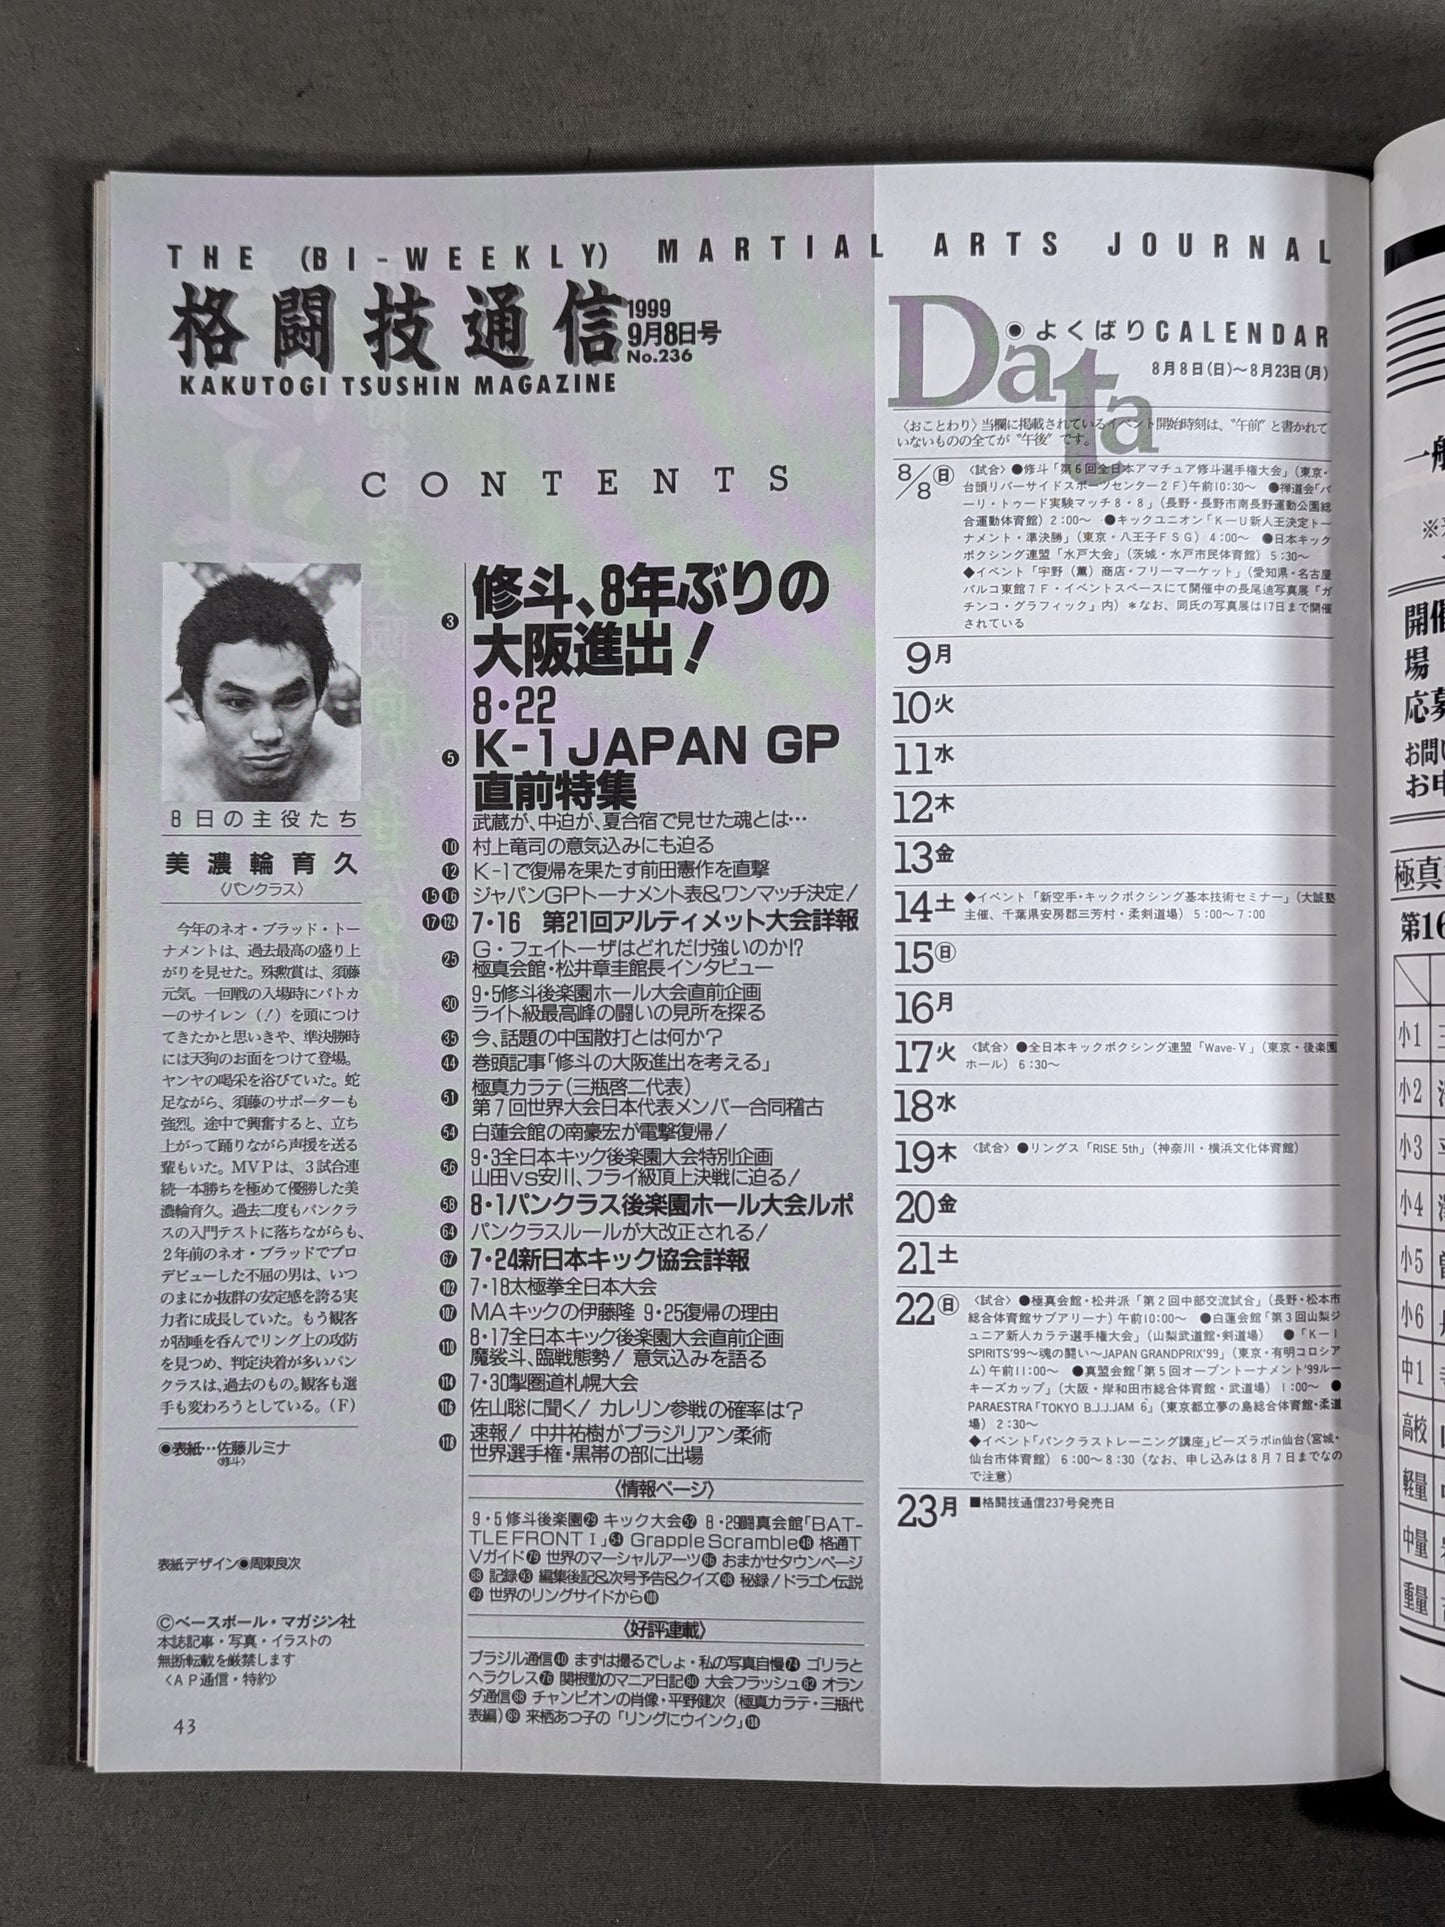 THE (BI-WEEKLY) MARTIAL ARTS JOURNAL
格闘技通信
1999
9月8日号
No.236
KAKUTOGI TSUSHIN MAGAZINE
CONTENTS
8日の主役たち
美濃輪育久
〈パンクラス〉
今年のネオ・ブラッド・トー
ナメントは、過去最高の盛り上
がりを見せた。殊勲賞は、須藤
元気。一回戦の入場時にパトカ
ーのサイレン(!)を頭につけ
てきたかと思いきや、準決勝時
には天狗のお面をつけて登場。
ヤンヤの喝采を浴びていた。蛇
足ながら、須藤のサポーターも
強烈。途中で興奮すると、立ち
上がって踊りながら声援を送る
輩もいた。MVPは、3試合連
続一本勝ちを極めて優勝した美
濃輪育久。過去二度もパンクラ
スの入門テストに落ちながらも、
2年前のネオ・ブラッドでプロ
デビューした不屈の男は、いつ
のまにか抜群の安定感を誇る実
力者に成長していた。もう観客
が固唾を呑んでリング上の攻防
を見つめ、判定決着が多いパン
クラスは、過去のもの。観客も選
手も変わろうとしている。(F)
●表紙…佐藤ルミナ
〈修斗〉
表紙デザイン●周東良次
©ベースボール・マガジン社
本誌記事・写真・イラストの
無断転載を厳禁します
〈AP通信・特約〉
43
3 修斗、8年ぶりの
大阪進出!
8・22
5 K-1 JAPAN GP
直前特集
武蔵が、中迫が、夏合宿で見せた魂とは…
10 村上竜司の意気込みにも迫る
12 K-1で復帰を果たす前田憲作を直撃
15 16 ジャパンGPトーナメント表&ワンマッチ決定!
17 124 7・16 第21回アルティメット大会詳報
25 G・フェイトーザはどれだけ強いのか!?
極真会館・松井章圭館長インタビュー
30 9・5修斗後楽園ホール大会直前企画
ライト級最高峰の闘いの見所を探る
35 今、話題の中国散打とは何か?
44 巻頭記事「修斗の大阪進出を考える」
51 極真カラテ(三瓶啓二代表)
第7回世界大会日本代表メンバー合同稽古
54 白蓮会館の南豪宏が電撃復帰!
56 9・3全日本キック後楽園大会特別企画
山田vs安川、フライ級頂上決戦に迫る!
58 8・1パンクラス後楽園ホール大会ルポ
64 パンクラスルールが大改正される!
67 7・24新日本キック協会詳報
102 7・18太極拳全日本大会
107 MAキックの伊藤隆 9・25復帰の理由
110 8・17全日本キック後楽園大会直前企画
魔裟斗、臨戦態勢! 意気込みを語る
114 7・30掣圏道札幌大会
116 佐山聡に聞く! カレリン参戦の確率は?
118 速報! 中井祐樹がブラジリアン柔術
世界選手権・黒帯の部に出場
〈情報ページ〉
9・5修斗後楽園29 キック大会52 8・29闘真会館「BAT-
TLE FRONT I」54 Grapple Scramble48 格通T
Vガイド79 世界のマーシャルアーツ86 おまかせタウンページ
88 記録93 編集後記&次号予告&クイズ98 秘録!ドラゴン伝説
99 世界のリングサイドから100
〈好評連載〉
ブラジル通信40 まずは撮るでしょ・私の写真自慢74 ゴリラと
ヘラクレス76 関根勤のマニア日記80 大会フラッシュ82 オラン
ダ通信88 チャンピオンの肖像・平野健次(極真カラテ・三瓶代
表編)89 来栖あつ子の「リングにウインク」138
Data
●よくばりCALENDAR
8月8日(日)〜8月23日(月)
〈おことわり〉当欄に掲載されているイベント開始時刻は、“午前”と書かれて
いないものの全てが“午後”です。
8/8(日) 〈試合〉●修斗「第6回全日本アマチュア修斗選手権大会」(東京・
台頭リバーサイドスポーツセンター2F)午前10:30〜 ●禅道会「バ
ーリ・トゥード実験マッチ8・8」(長野・長野市南長野運動公園総
合運動体育館)2:00〜 ●キックユニオン「K-U新人王決定トー
ナメント・準決勝」(東京・八王子FSG)4:00〜 ●日本キック
ボクシング連盟「水戸大会」(茨城・水戸市民体育館)5:30〜
◆イベント「宇野(薫)商店・フリーマーケット」(愛知県・名古屋
パルコ東館7F・イベントスペースにて開催中の長尾迪写真展「ガ
チンコ・グラフィック」内)*なお、同氏の写真展は17日まで開催
されている
9月
10火
11水
12木
13金
14土 ◆イベント「新空手・キックボクシング基本技術セミナー」(大誠塾
主催、千葉県安房郡三芳村・柔剣道場)5:00〜7:00
15(日)
16月
17火 〈試合〉●全日本キックボクシング連盟「Wave-V」(東京・後楽園
ホール)6:30〜
18水
19木 〈試合〉●リングス「RISE 5th」(神奈川・横浜文化体育館)
20金
21土
22(日) 〈試合〉●極真会館・松井派「第2回中部交流試合」(長野・松本市
総合体育館サブアリーナ)午前10:00〜 ●白蓮会館「第3回山梨ジ
ュニア新人カラテ選手権大会」(山梨武道館・剣道場) ●「K-1
SPIRITS'99〜魂の闘い〜JAPAN GRANDPRIX'99」(東京・有明コロシア
ム)午前11:00〜 ●真盟会館「第5回オープントーナメント'99ルー
キーズカップ」(大阪・岸和田市総合体育館・武道場)1:00〜 ●
PARAESTRA「TOKYO B.J.J.JAM 6」(東京都立夢の島総合体育館・柔道
場)2:30〜
◆イベント「パンクラストレーニング講座」ピーズラボin仙台(宮城・
仙台市体育館)6:00〜8:30(なお、申し込みは8月7日までなの
で注意)
23月 ■格闘技通信237号発売日
一般
開催
場
応募
お問
お申
極真
第16
小1
小2
小3
小4
小5
小6
中1
高校
軽量
中量
重量